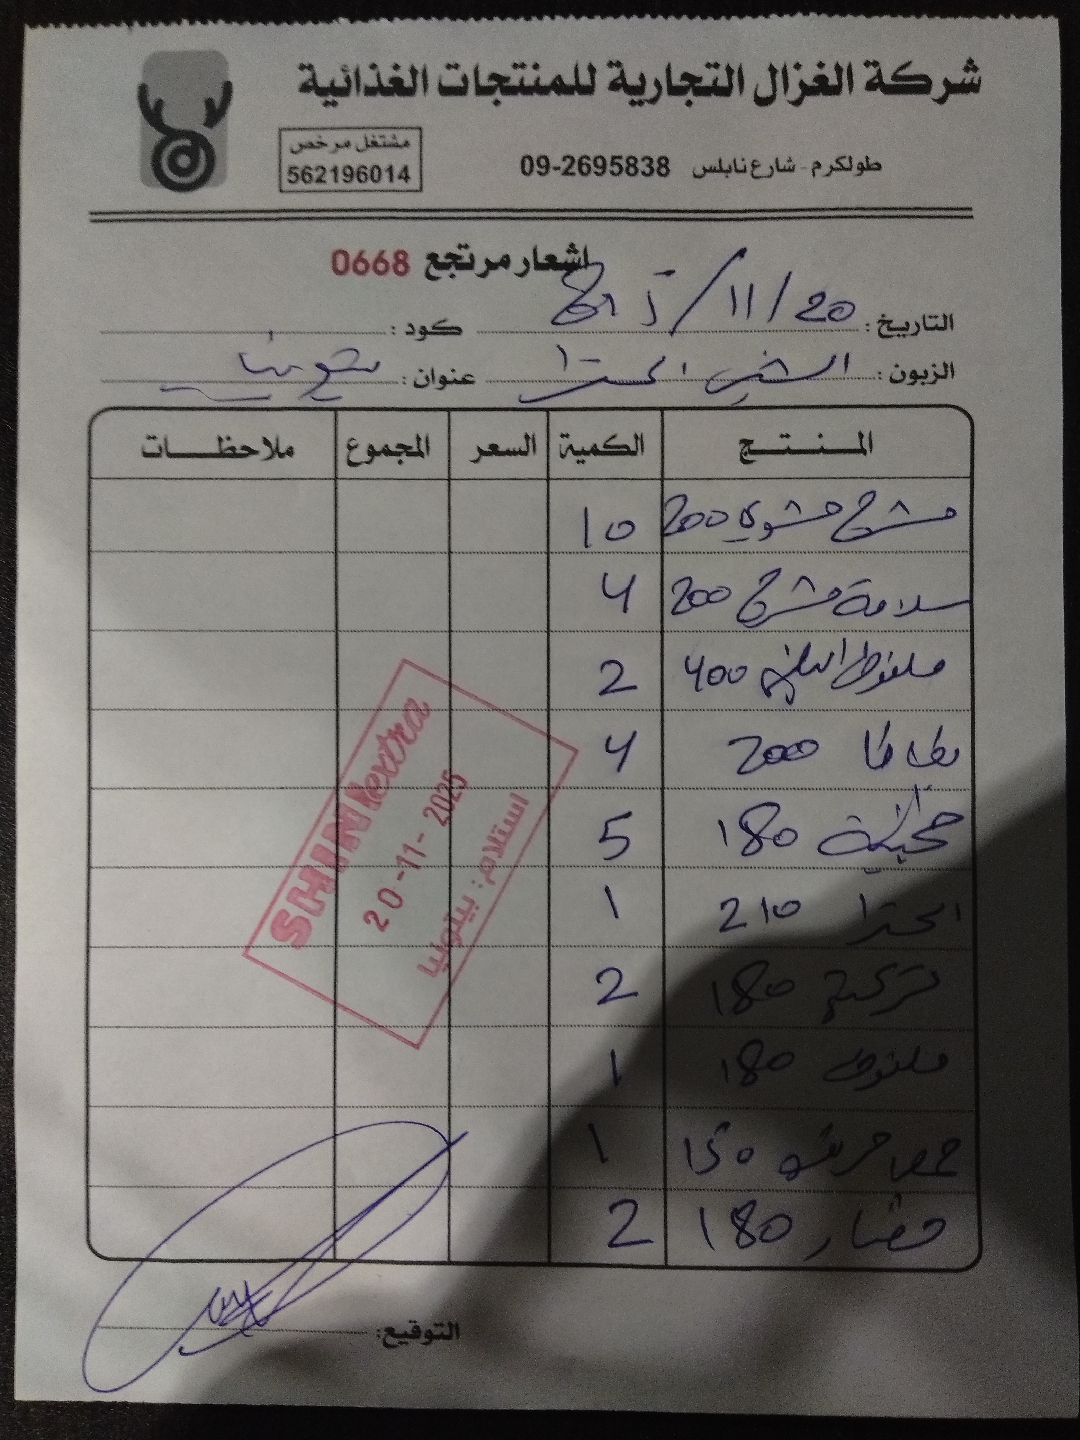 شركة الغزال التجارية للمنتجات الغذائية
مشتغل مرخص
562196014
طولكرم - شارع نابلس 09-2695838
اشعار مرتجع 0668
التاريخ: 20/11/
كود:
الزبون: الشني اكسترا
عنوان: بيتونيا
المنتج الكمية السعر المجموع ملاحظات
مشرح مشوي 200 10
سلامة مشرح 200 4
ملفوف ابيض 400 2
بطاطا 200 4
180 5
اكسترا 210 1
تركية 180 2
ملفوف 180 1
حمص حريف 150 1
خضار 180 2
SHINI extra
20-11-2025
استلام: بيتونيا
التوقيع: